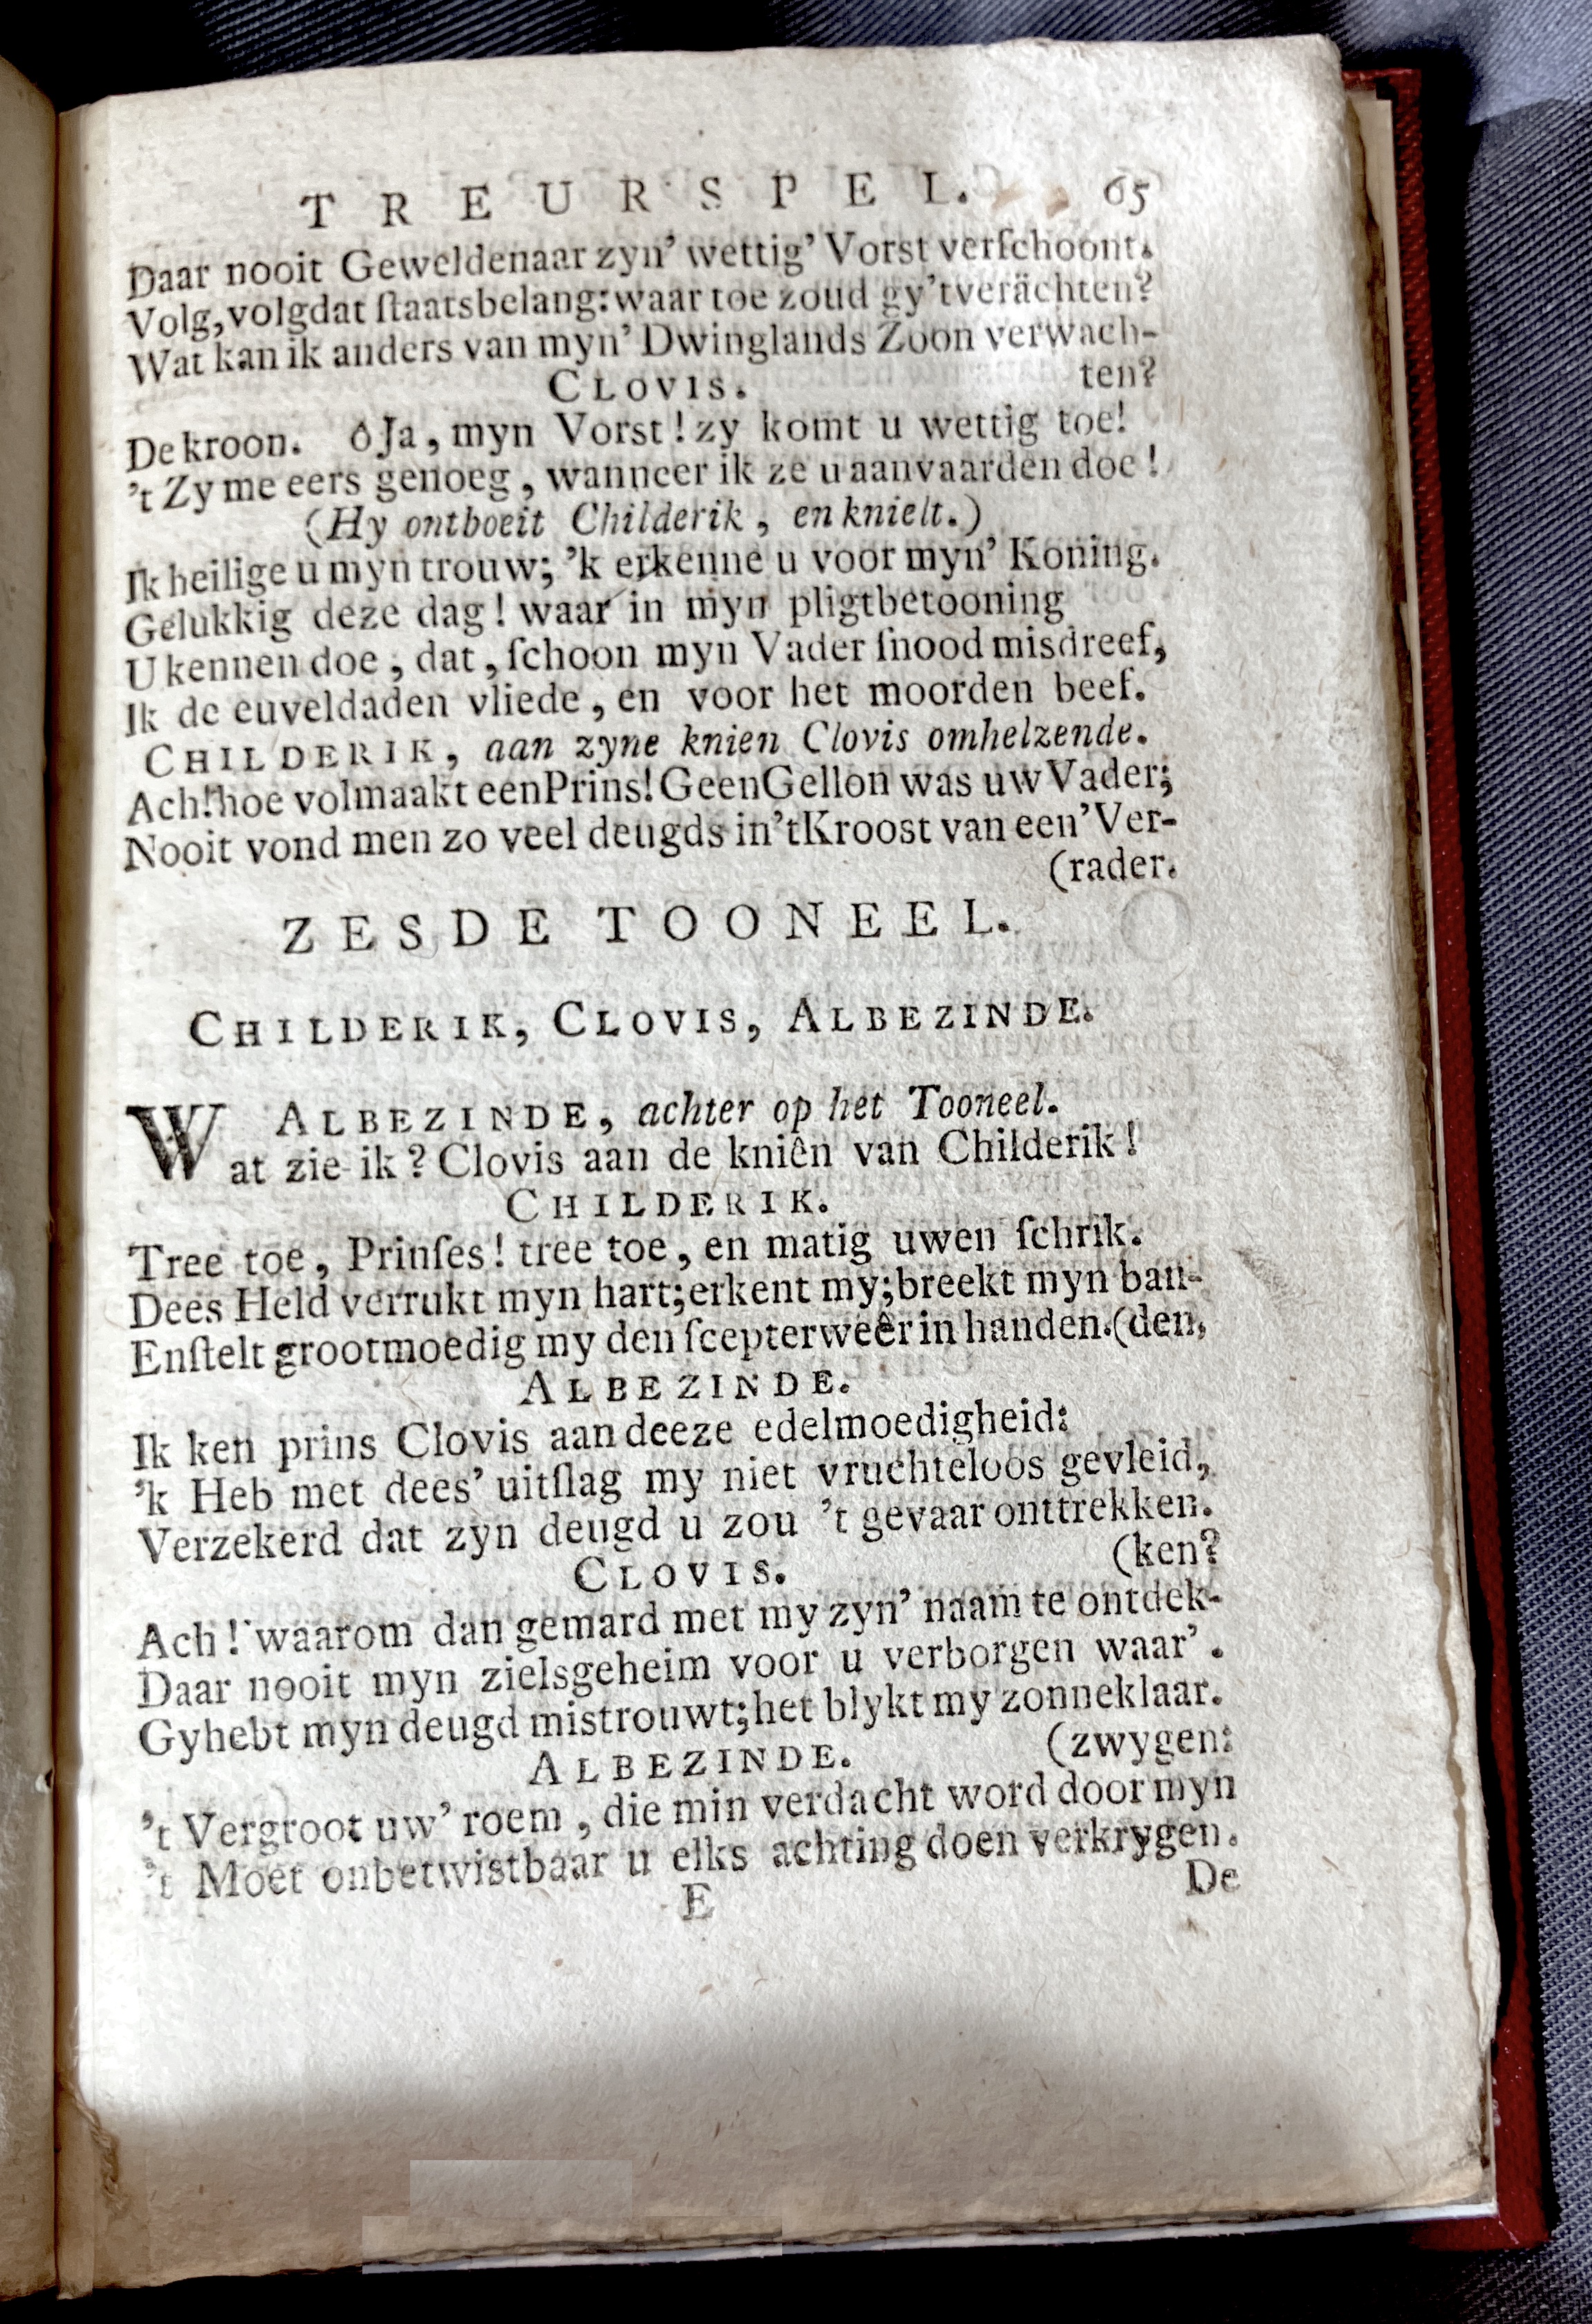 TREURSPEL. 65
Daar nooit Geweldenaar zyn' wettig' Vorst verſchoont.
Volg, volg dat ſtaatsbelang: waar toe zoud gy 't verächten?
Wat kan ik anders van myn' Dwinglands Zoon verwach-
ten?
CLOVIS.
De kroon. ô Ja, myn Vorst! zy komt u wettig toe!
't Zy me eers genoeg, wanneer ik ze u aanvaarden doe!
(Hy ontboeit Childerik, en knielt.)
Ik heilige u myn trouw; 'k erkenne u voor myn' Koning.
Gelukkig deze dag! waar in myn pligtbetooning
U kennen doe, dat, ſchoon myn Vader ſnood misdreef,
Ik de euveldaden vliede, en voor het moorden beef.
CHILDERIK, aan zyne knien Clovis omhelzende.
Ach! hoe volmaakt een Prins! Geen Gellon was uw Vader;
Nooit vond men zo veel deugds in 't Kroost van een' Ver-
(rader.
ZESDE TOONEEL.
CHILDERIK, CLOVIS, ALBEZINDE.
ALBEZINDE, achter op het Tooneel.
Wat zie ik? Clovis aan de kniên van Childerik!
CHILDERIK.
Tree toe, Prinſes! tree toe, en matig uwen ſchrik.
Dees Held verrukt myn hart; erkent my; breekt myn ban-
En ſtelt grootmoedig my den ſcepter weêr in handen. (den,
ALBEZINDE.
Ik ken prins Clovis aan deeze edelmoedigheid:
'k Heb met dees' uitſlag my niet vruchteloos gevleid,
Verzekerd dat zyn deugd u zou 't gevaar onttrekken.
CLOVIS. (ken?
Ach! waarom dan gemard met my zyn' naam te ontdek-
Daar nooit myn zielsgeheim voor u verborgen waar'.
Gy hebt myn deugd mistrouwt; het blykt my zonneklaar.
ALBEZINDE. (zwygen:
't Vergroot uw' roem, die min verdacht word door myn
't Moet onbetwistbaar u elks achting doen verkrygen.
E De